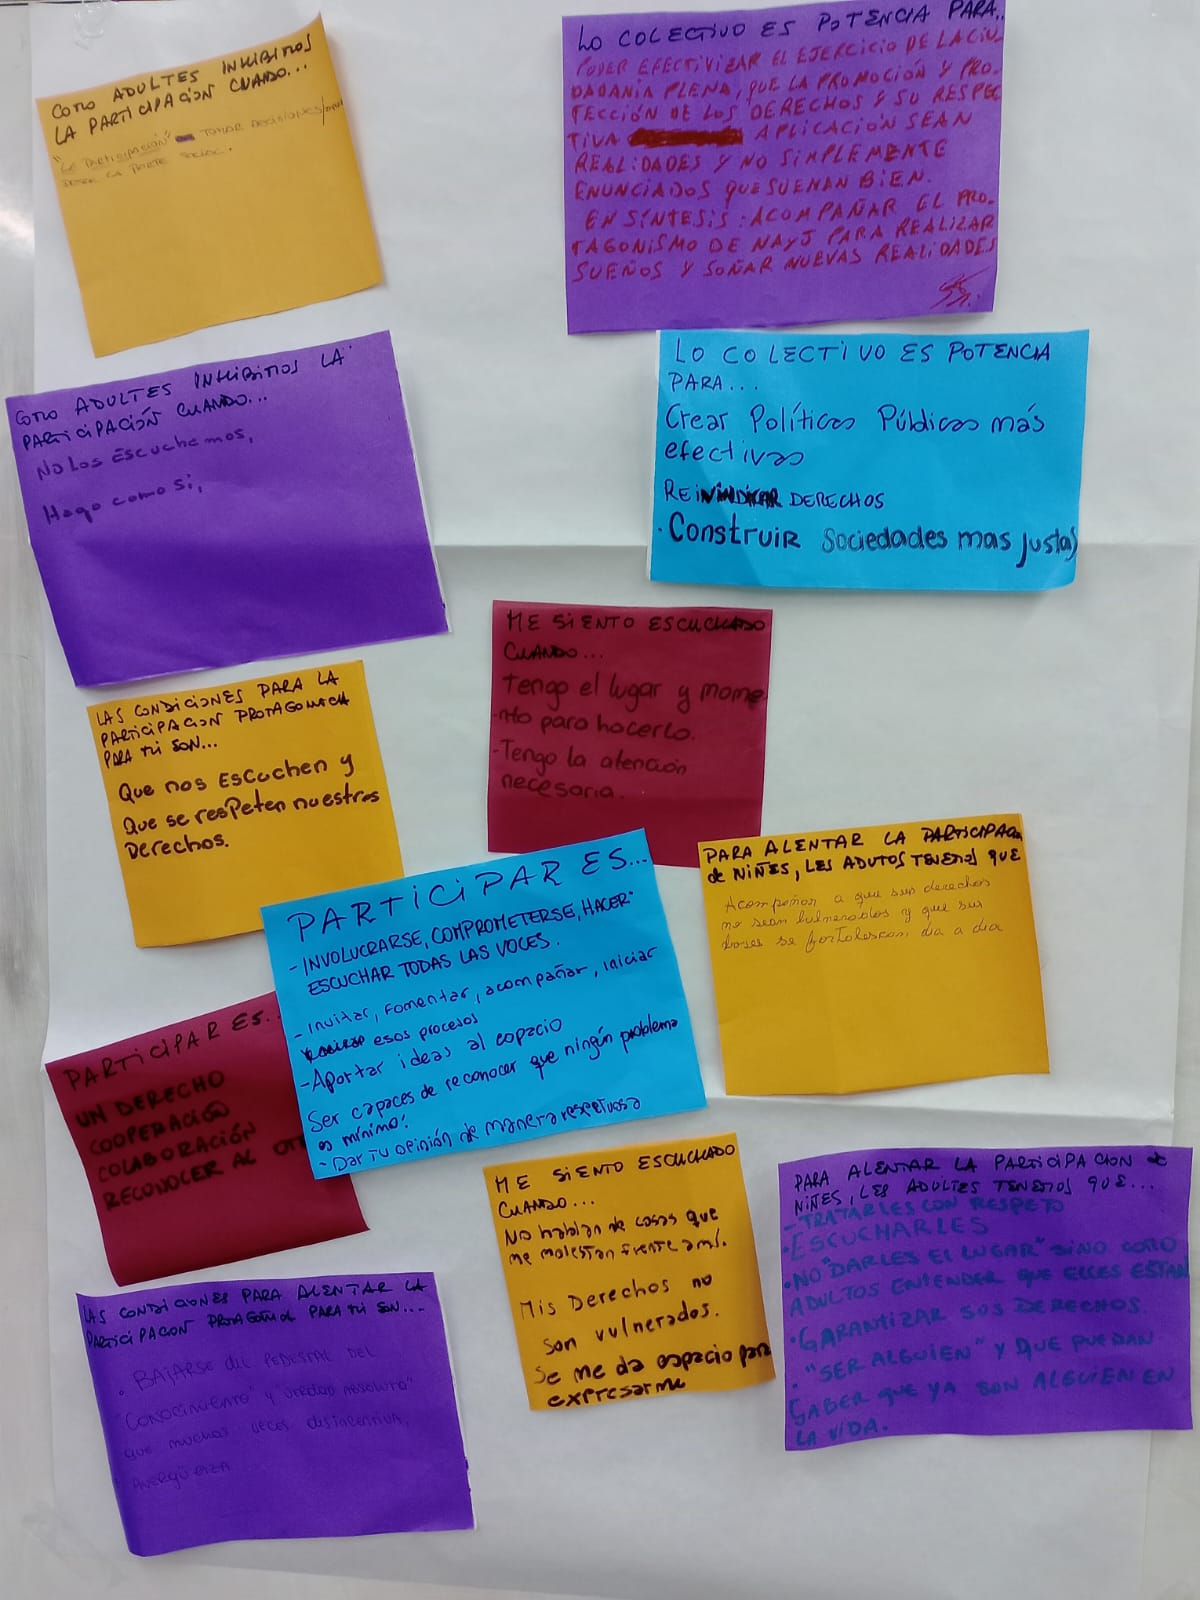 COMO ADULTES INHIBIMOS
LA PARTICIPACIÓN
CUANDO...
"LE PARTICIPACIÓN" TOMAR DECISIONES
DESDE LA PARTE SOCIAL.
LO COLECTIVO ES POTENCIA PARA...
PODER EFECTIVIZAR EL EJERCICIO DE LA CIU-
DADANÍA PLENA, QUE LA PROMOCIÓN Y PRO-
TECCIÓN DE LOS DERECHOS Y SU RESPEC
TIVA APLICACIÓN SEAN
REALIDADES Y NO SIMPLEMENTE
ENUNCIADOS QUE SUENAN BIEN.
EN SÍNTESIS: ACOMPAÑAR EL PRO-
TAGONISMO DE NAYJ PARA REALIZAR
SUEÑOS Y SOÑAR NUEVAS REALIDADES
COMO ADULTES INHIBIMOS LA
PARTICIPACIÓN CUANDO...
NO LOS ESCUCHAMOS,
Hago como si,
LO COLECTIVO ES POTENCIA
PARA...
Crear Políticas Públicas más
efectivas
REINVINDICAR DERECHOS
· Construir Sociedades mas justas
ME SIENTO ESCUCHADO
CUANDO...
Tengo el lugar y mome
-nto para hacerlo.
-Tengo la atención
necesaria.
LAS CONDICIONES PARA LA
PARTICIPACION PROTAGONICA
PARA TÚ SON...
Que nos Escuchen y
Que se respeten nuestros
Derechos.
PARA ALENTAR LA PARTICIPACION
de NIÑES, LES ADUTOS TENEMOS QUE
Acompañar a que sus derechos
no sean bulnerables y que sus
boses se fortalescan, dia a dia
PARTICIPAR ES...
- INVOLUCRARSE, COMPROMETERSE, HACER
ESCUCHAR TODAS LAS VOCES.
- Invitar, Fomentar, acompañar, iniciar
esos procesos
- Aportar ideas al espacio
Ser capaces de reconocer que ningún problema
es mínimo.
- Dar TU opinión de manera respetuosa
PARTICIPAR ES...
UN DERECHO
COOPERACIÓN
COLABORACIÓN
RECONOCER AL OT
ME SIENTO ESCUCHADO
CUANDO...
No hablan de cosas que
me molestan frente a mí.
Mis Derechos no
son vulnerados.
Se me da espacio para
expresarme
PARA ALENTAR LA PARTICIPACION de
NIÑES, LES ADULTES TENEMOS QUE...
- TRATARLES CON RESPETO
· ESCUCHARLES
· NO "DARLES EL LUGAR" SINO COMO
ADULTOS ENTENDER QUE ELLES ESTAN
· GARANTIZAR SUS DERECHOS.
· "SER ALGUIEN" Y QUE PUEDAN
SABER QUE YA SON ALGUIEN EN
LA VIDA.
LAS CONDICIONES PARA ALENTAR LA
PARTICIPACION PROTAGÓNICA PARA TÚ SON...
· BAJARSE DEL PEDESTAL DEL
"CONOCIMIENTO" Y "VERDAD ABSOLUTA"
QUE MUCHAS VECES DESINCENTIVA,
AVERGÜENZA